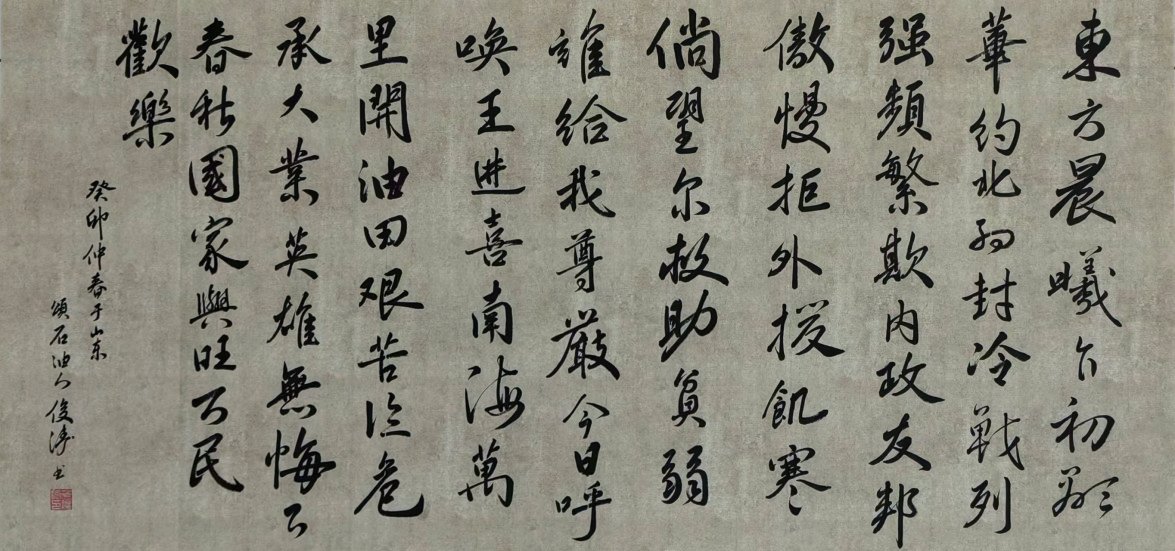 東方晨曦乍初
華約北約封冷戰列
强頻繁欺内政友邦
傲慢拒外援飢寒
倘望尔救助負弱
誰給我尊嚴今日呼
喚王進喜南海萬
里開油田艱苦危
承大業英雄無悔
春秋國家興旺万民
歡樂
癸卯仲春于山东
頌石油人俊涛书